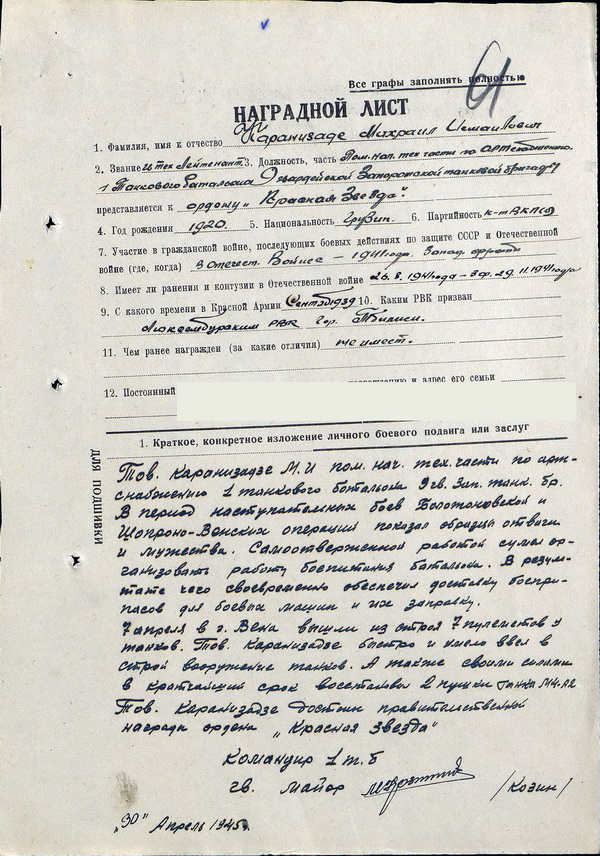 61
Все графы заполнять полностью
НАГРАДНОЙ ЛИСТ
1. Фамилия, имя и отчество Каранизаде Михраил Исмаилович
2. Звание Тех Лейтенант 3. Должность, часть Пом. нач. тех части по артснабжению
1 Танкового батальона 9 Гвардейской Запорожской танковой бригады
представляется к ордену „Красная Звезда".
4. Год рождения 1920. 5. Национальность Грузин. 6. Партийность к-т ВКП(б)
7. Участие в гражданской войне, последующих боевых действиях по защите СССР и Отечественной
войне (где, когда) в Отечест. Войне – 1941 года. Запад. фронт
8. Имеет ли ранения и контузии в Отечественной войне 26.8.1941 года – 29.11.1941 года
9. С какого времени в Красной Армии Сентяб 1939 10. Каким РВК призван
Люксембургским РВК гор. Тбилиси.
11. Чем ранее награжден (за какие отличия) не имеет.
12. Постоянный и адрес его семьи
1. Краткое, конкретное изложение личного боевого подвига или заслуг
ДЛЯ ПОДШИВКИ
Тов. Каранизадзе М.И пом. нач. тех. части по арт-
снабжению 1 танкового батальона 9 гв. Зап. танк. бр.
В период наступательных боев Болотоновской и
Шопроно-Венских операций показал образцы отваги
и мужества. Самоотверженной работой сумел ор-
ганизовать работу боепитания батальона. В резуль-
тате чего своевременно обеспечил доставку боепри-
пасов для боевых машин и их заправку.
7 апреля в г. Вена вышли из строя 7 пулеметов у
танков. Тов. Каранизадзе быстро и умело ввел в
строй вооружение танков. А также своими силами
в кратчайший срок восстановил 2 пушки танка М4-А2
Тов. Каранизадзе достоин правительственной
награды ордена „Красная Звезда"
Командир 1 т.б
гв. майор /Козин/
„30" Апрель 1945г.